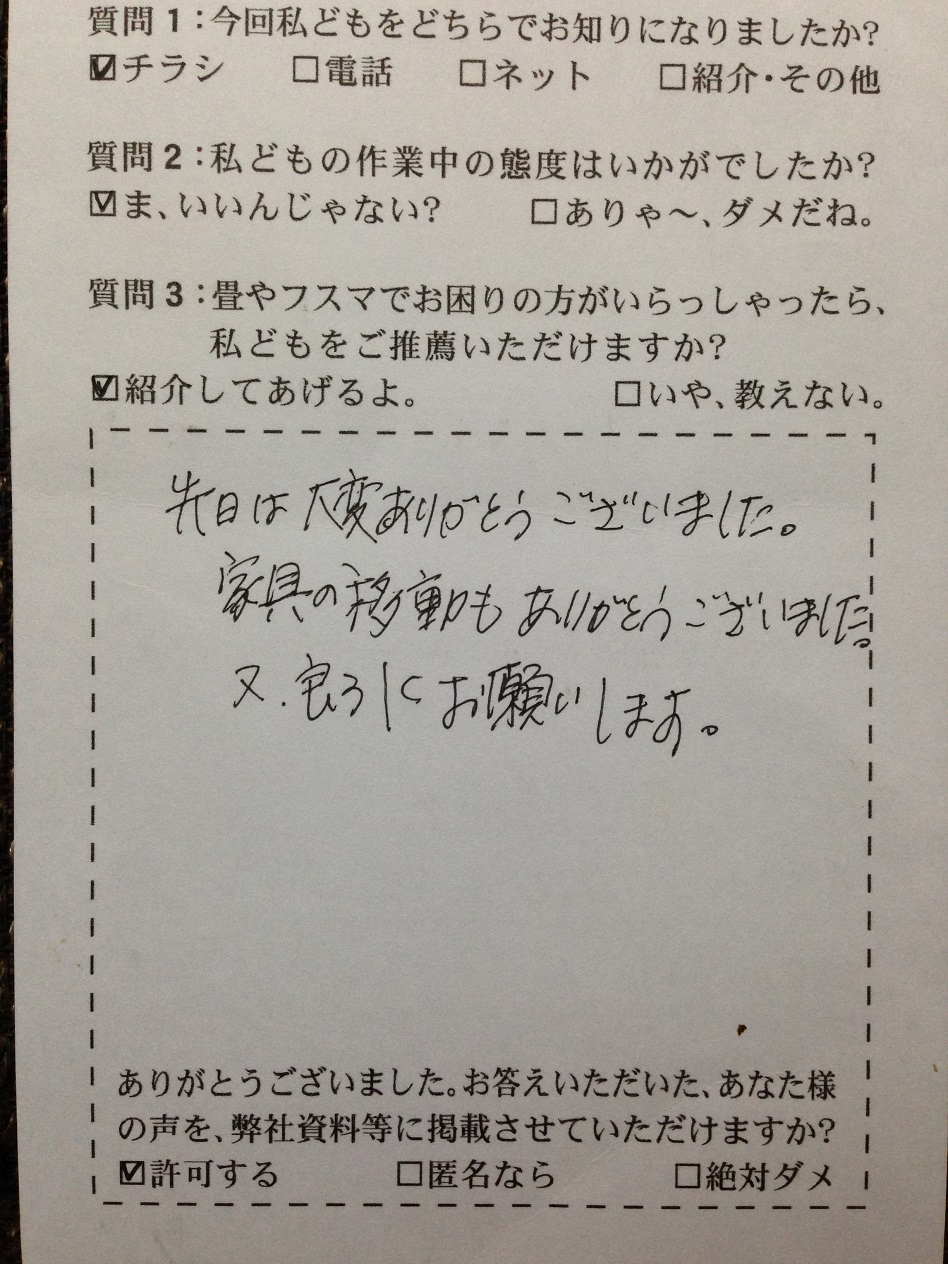 質問1:今回私どもをどちらでお知りになりましたか?
☑チラシ □電話 □ネット □紹介・その他
質問2:私どもの作業中の態度はいかがでしたか?
☑ま、いいんじゃない? □ありゃ〜、ダメだね。
質問3:畳やフスマでお困りの方がいらっしゃったら、
私どもをご推薦いただけますか?
☑紹介してあげるよ。 □いや、教えない。
先日は大変ありがとうございました。
家具の移動もありがとうございました。
又、良ろしくお願いします。
ありがとうございました。お答えいただいた、あなた様
の声を、弊社資料等に掲載させていただけますか?
☑許可する □匿名なら □絶対ダメ